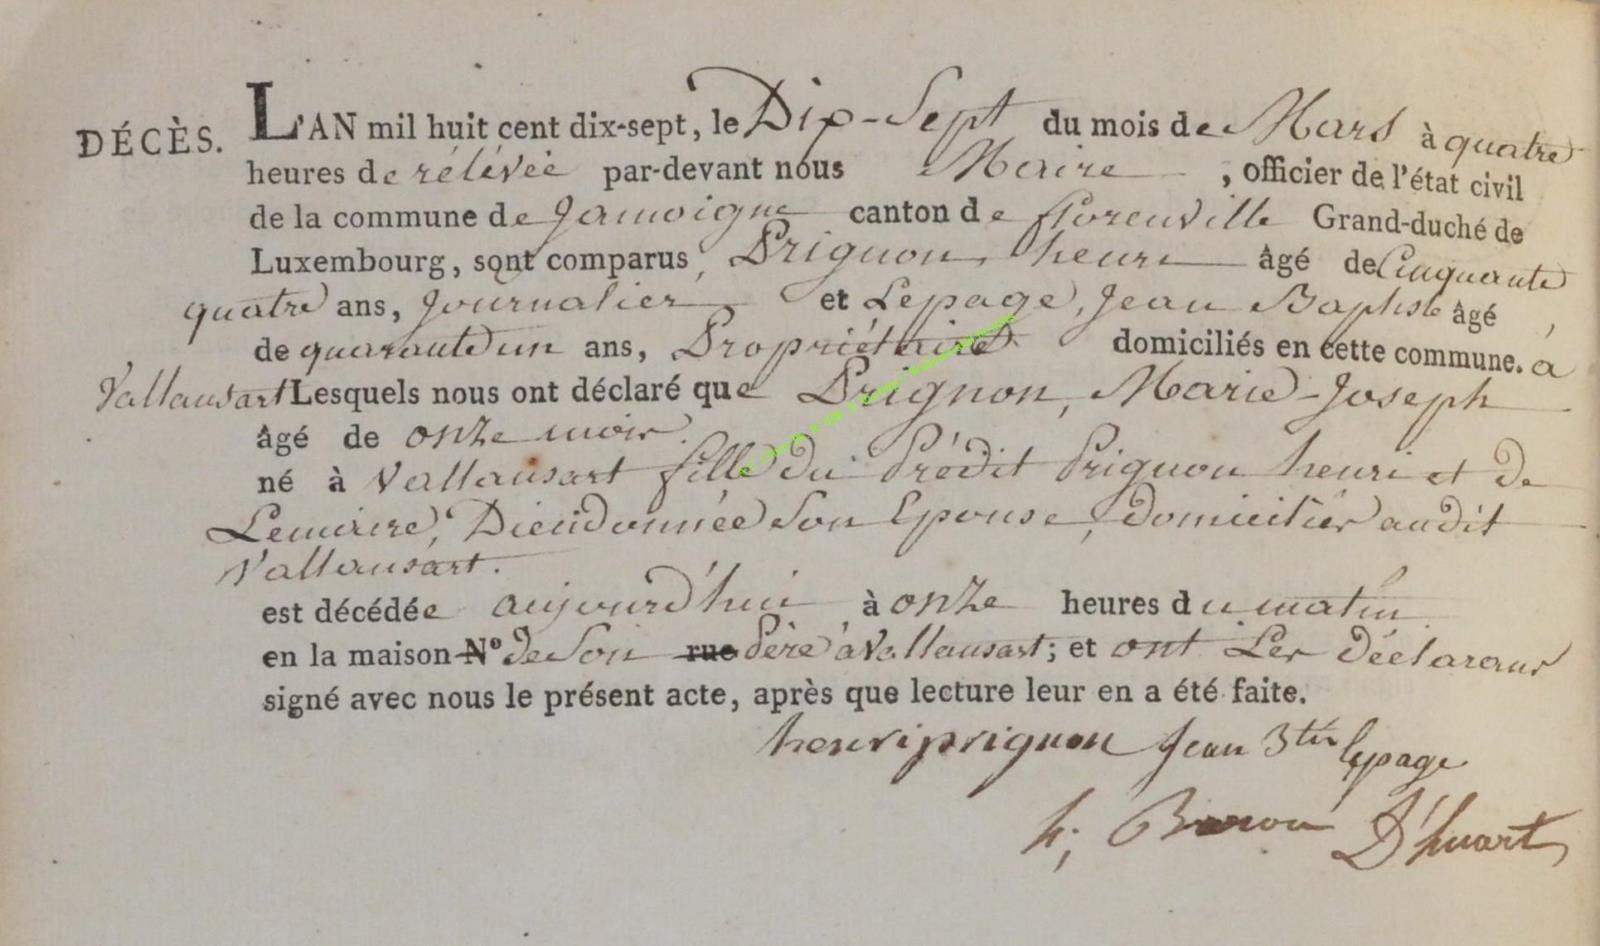 DÉCÈS. L'AN mil huit cent dix-sept, le Dix-Sept du mois de Mars à quatre
heures de rélévée par-devant nous Maire , officier de l'état civil
de la commune de Jamoigne canton de florenville Grand-duché de
Luxembourg, sont comparus, Prignon, henri âgé de Cinquante
quatre ans, Journalier et Lepage, Jean Baptiste âgé
de quarante un ans, Propriétaire domiciliés en cette commune. à
Vallansart Lesquels nous ont déclaré que Prignon, Marie-Joseph
âgé de onze mois.
né à Vallansart fille du Prédit Prignon henri et de
Lemaire, Dieudonnée Son Epouse, domiciliés audit
Vallansart.
est décédée aujourd'hui à onze heures du matin
en la maison N° de Son rue Père à Vallansart; et ont Les Déclarans
signé avec nous le présent acte, après que lecture leur en a été faite.
henri prignon Jean Btis lepage
h; Baron D'huart